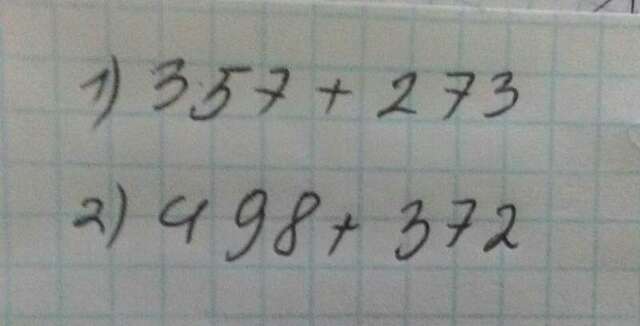 1) 357 + 273
2) 498 + 372